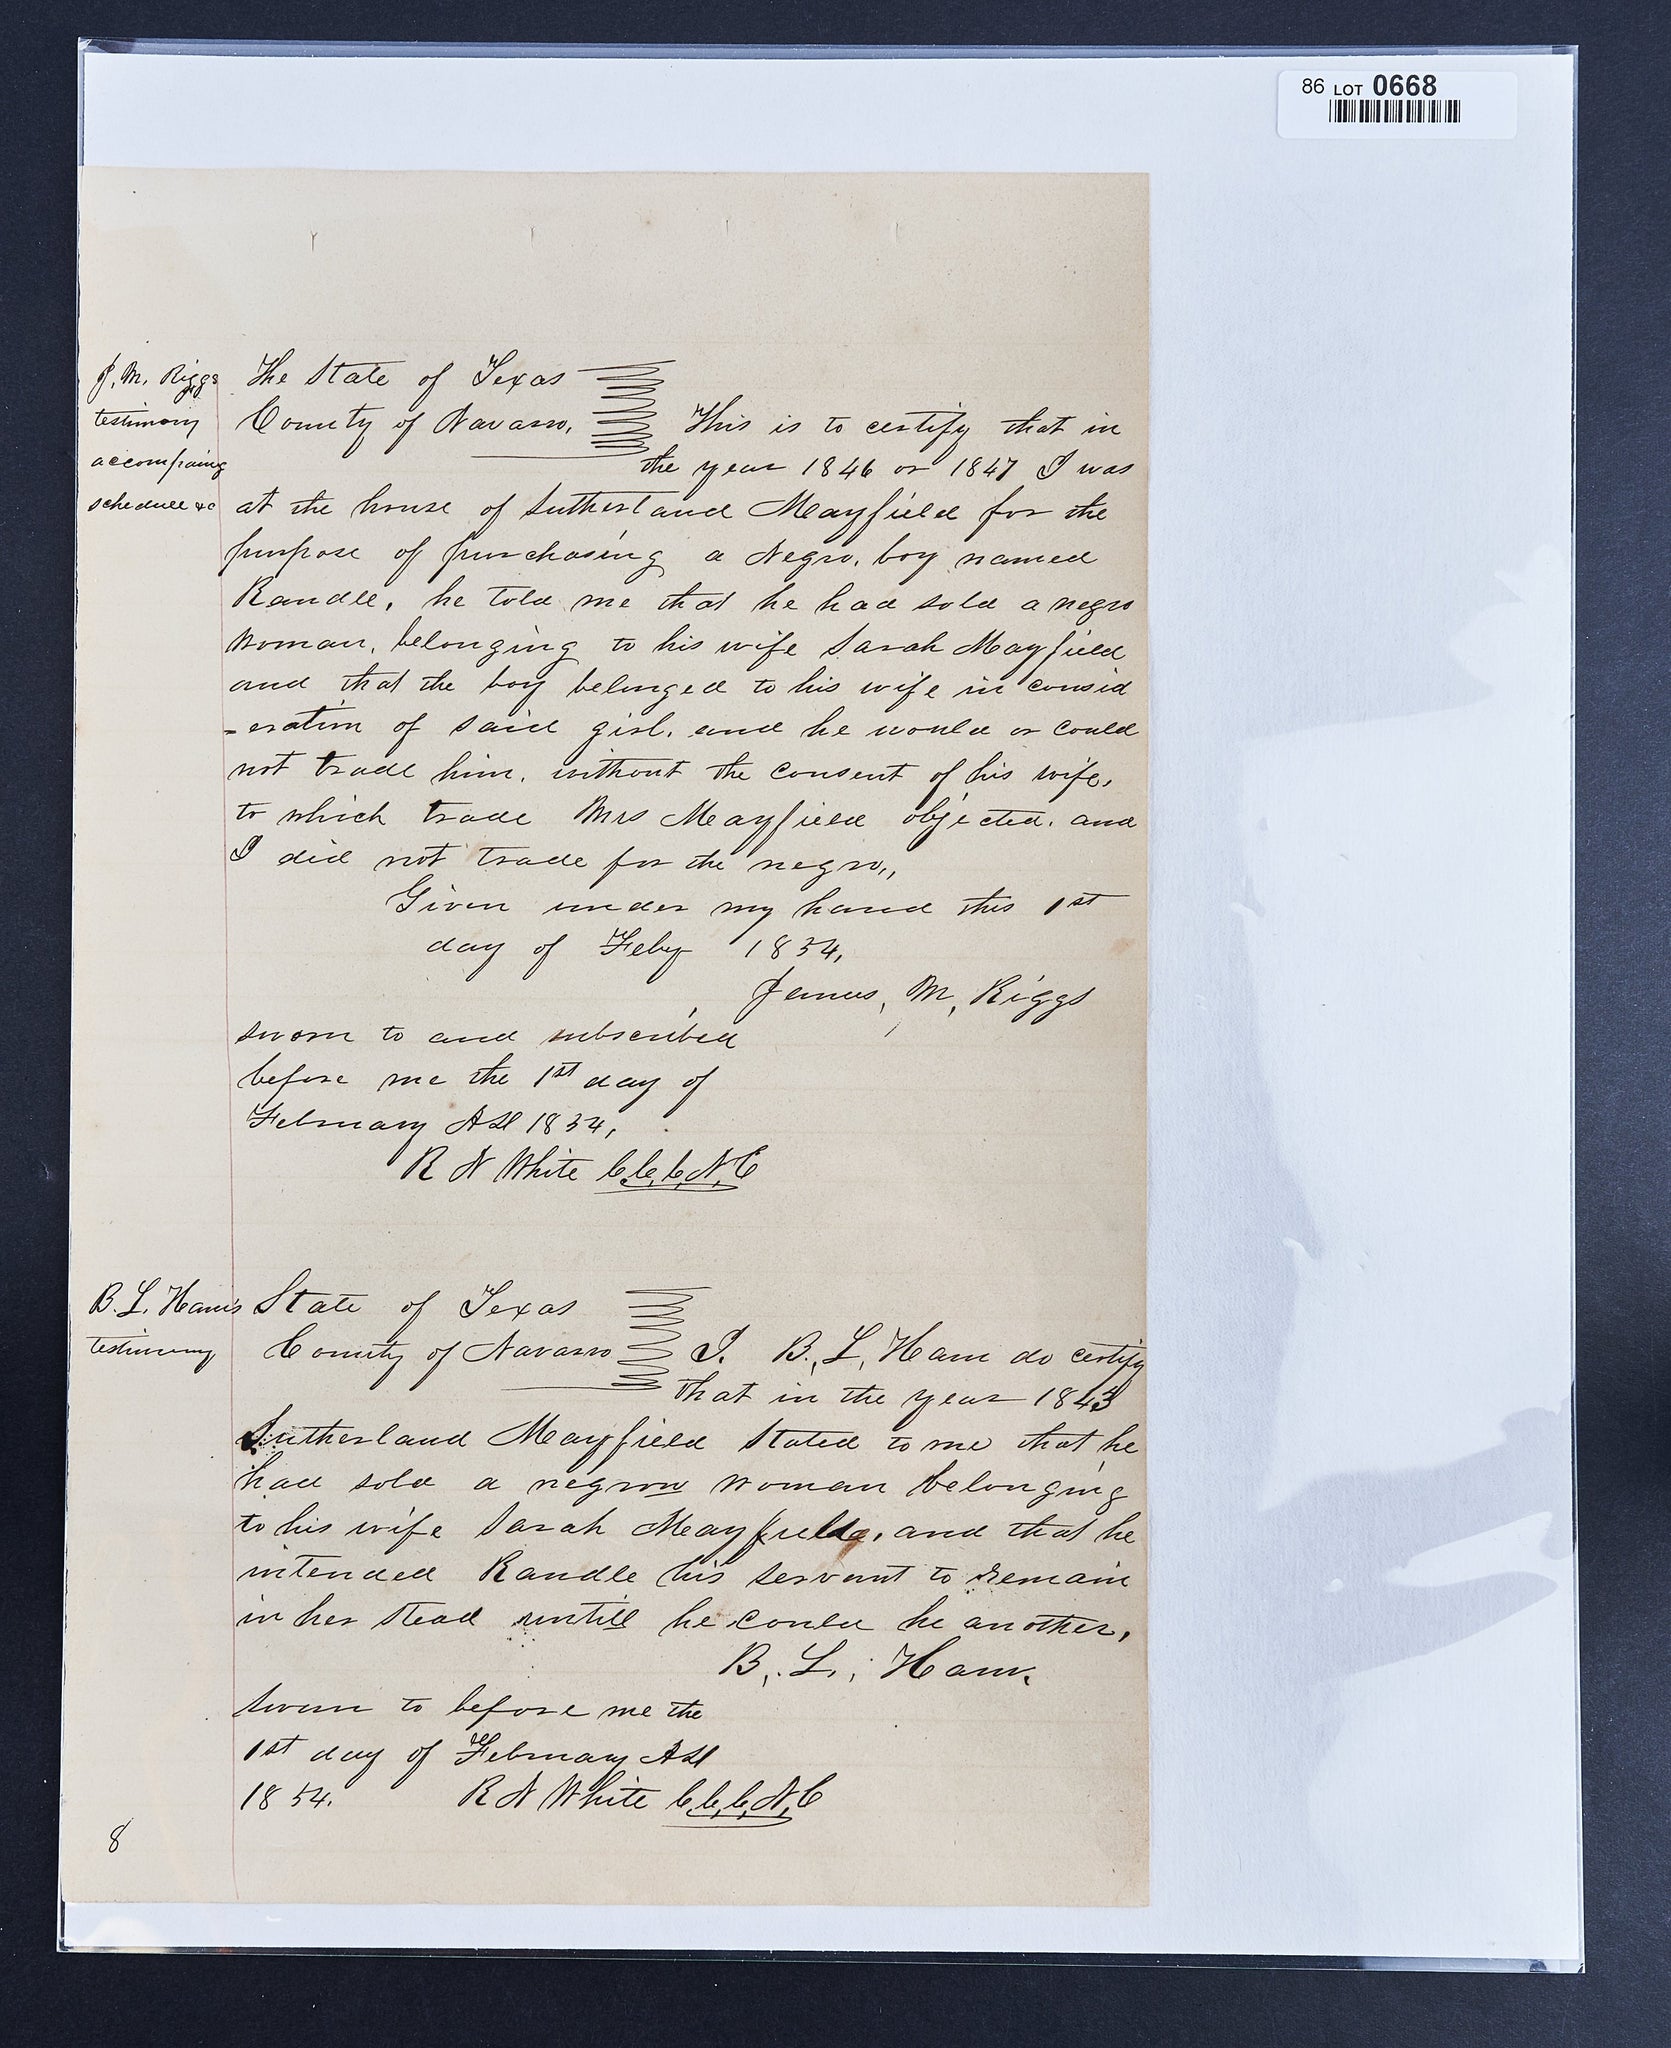 86 LOT 0668
J. M. Riggs
testimony
accompaing
schedule &c
The State of Texas
County of Navarro,
This is to certify that in
the year 1846 or 1847 I was
at the house of Sutherland Mayfield for the
purpose of purchasing a Negro, boy named
Randle, he told me that he had sold a negro
woman, belonging to his wife Sarah Mayfield
and that the boy belonged to his wife in consid
-eration of said girl, and he would or could
not trade him, without the consent of his wife,
to which trade Mrs Mayfield objected, and
I did not trade for the negro,,
Given under my hand this 1st
day of Feby 1854,
James, M, Riggs
sworn to and subscribed
before me the 1st day of
February AD 1854,
R N White C,C,C,N,C
B. L. Ham's
testimony
State of Texas
County of Navarro
I. B, L, Ham do certify
that in the year 1843
Sutherland Mayfield stated to me that he
had sold a negrow woman belonging
to his wife Sarah Mayfield, and that he
intended Randle his servant to remain
in her stead untill he could he another,
B, L, Ham.
sworn to before me the
1st day of February AD
1854. R N White C,C,C,N,C
8